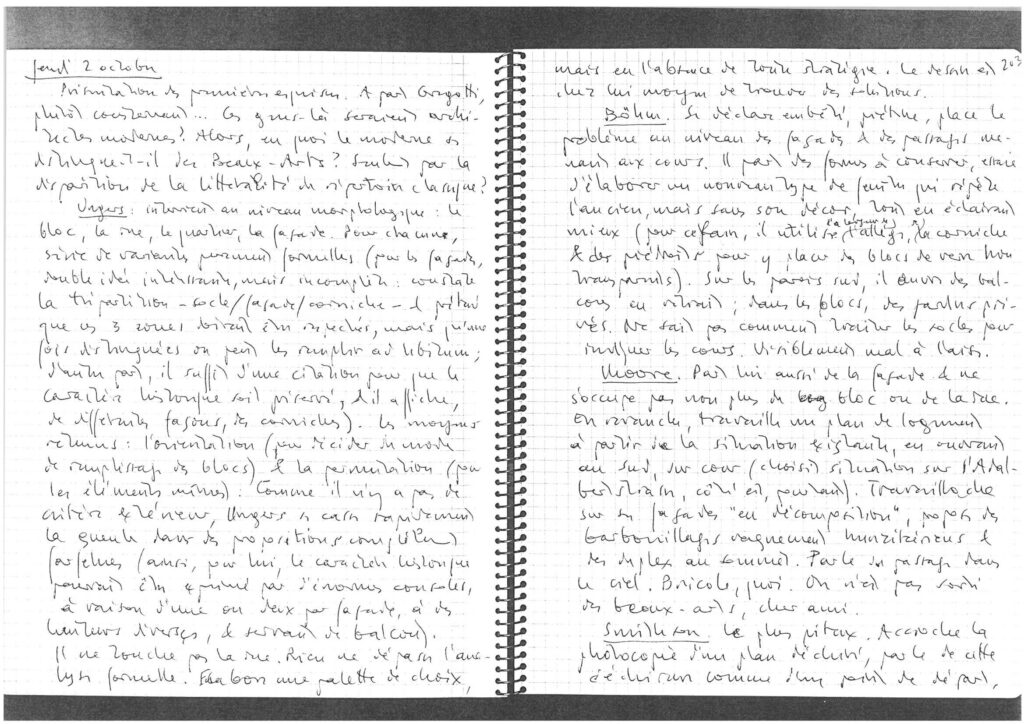 Jeudi 2 octobre
Présentation des premières esquisses. A part Gregotti,
plutôt consternant... Ces gens-là seraient archi-
tectes modernes? Alors, en quoi le moderne se
distingue-t-il des Beaux-Arts? Seulement par la
disparition de la littéralité du répertoire classique?
Ungers: intervient au niveau morphologique: le
bloc, la rue, le quartier, la façade. Pour chacune,
série de variantes purement formelles (pour les façades,
double idée intéressante, mais incomplète: constate
la tripartition - socle/façade/corniche - & prétend
que ces 3 zones doivent être respectées, mais qu'une
fois distinguées on peut les remplir ad libitum;
d'autre part, il suffit d'une citation pour que le
caractère historique soit préservé, d'où affiche,
de différentes façons, des corniches). Les moyens
retenus: l'orientation (pour décider du mode
de remplissage des blocs) & la permutation (pour
les éléments mêmes). Comme il n'y a pas de
critère extérieur, Ungers se casse rapidement
la gueule dans des propositions complètement
farfelues (ainsi, pour lui, le caractère historique
pourrait être exprimé par d'énormes consoles,
à raison d'une ou deux par façade, à des
hauteurs diverses, & servant de balcon).
Il ne touche pas la rue. Rien ne dépasse l'ana-
lyse formelle. Elabore une palette de choix,
203
mais en l'absence de toute stratégie. Le dessin est
chez lui moyen de trouver des solutions.
Böhm. Se déclare embêté, piétine, place le
problème au niveau des façades & des passages me-
nant aux cours. Il part des formes à conserver, essaie
d'élaborer un nouveau type de fenêtre qui répète
l'ancien, mais sans son décor, tout en éclairant
mieux (pour ce faire, il utilise l'allège, la corniche
& des piédroits pour y placer des blocs de verre non
transparents). Sur les parois sud, il ouvre des bal-
cons en retrait; dans les blocs, des jardins pri-
vés. Ne sait pas comment traiter les socles pour
indiquer les cours. Visiblement mal à l'aise.
Moore. Part lui aussi de la façade & ne
s'occupe pas non plus de bloc ou de la rue.
En revanche, travaille un plan de logement
à partir de la situation existante, en ouvrant
au sud, sur cour (choisit situation sur l'Adal-
bertstrasse, côté est, pourtant). Travaille
sur des façades "en décomposition", propose des
barbouillages vaguement &
des duplex au sommet. Parle du passage dans
le ciel. Bricole, quoi. On n'est pas sorti
des beaux-arts, cher ami.
Smithson. Le plus piteux. Accroche la
photocopie d'un plan déchiré, parle de cette
déchirure comme d'un point de départ,